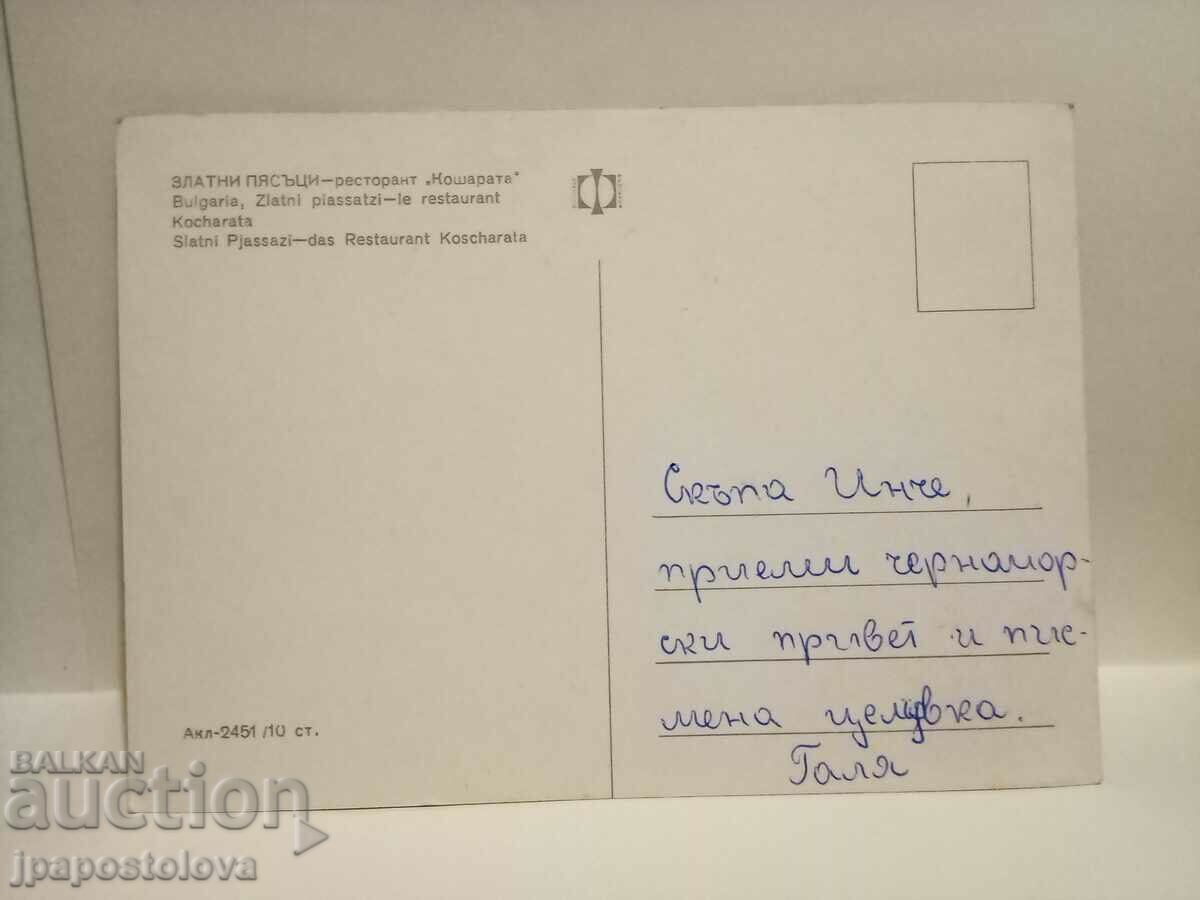 ЗЛАТНИ ПЯСЪЦИ—ресторант „Кошарата"
Bulgaria, Zlatni piassatzi—le restaurant
Kocharata
Slatni Pjassazi—das Restaurant Koscharata
Скъпа Инче,
приеми черномор-
ски привет и пис-
мена целувка.
Галя
Акл-2451/10 ст.
BALKAN
auction
jpapostolova